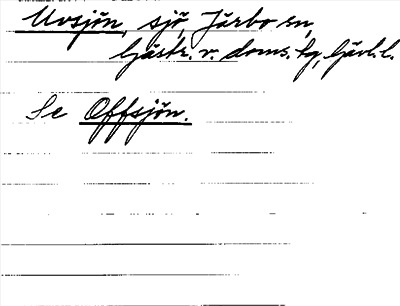 Uvsjön, sjö, Järbo sn,
Gästr. v. doms. hg, Gävl. l.
Se Offsjön.